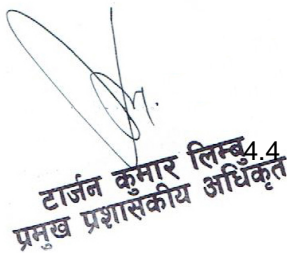 टार्जन कुमार लिम्बु 4.4
प्रमुख प्रशासकीय अधिकृत